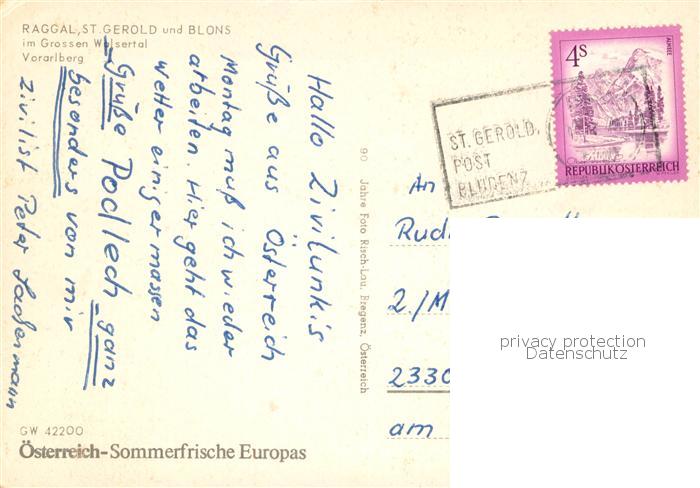 RAGGAL, ST. GEROLD und BLONS
im Grossen Walsertal
Vorarlberg
Hallo Zivilunkis
Grüße aus Österreich
Montag muß ich wieder
arbeiten. Hier geht das
Wetter einigermassen
Grüße Podlech ganz
besonders von mir
Zivilist Peter
GW 42200
Österreich-Sommerfrische Europas
90 Jahre Foto Risch-Lau, Bregenz, Österreich
4S
ALMSEE
REPUBLIK ÖSTERREICH
ST. GEROLD,
POST
BLUDENZ
An
Rudi
2./M
2330
am
privacy protection
Datenschutz